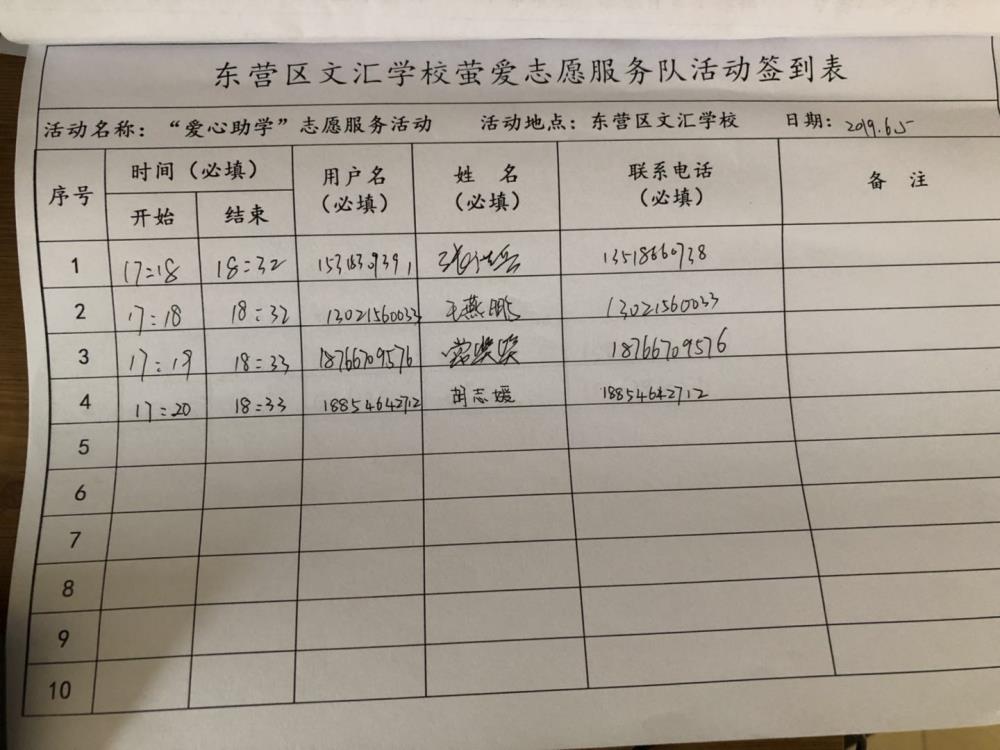 东营区文汇学校萤爱志愿服务队活动签到表
活动名称：“爱心助学”志愿服务活动 活动地点：东营区文汇学校 日期：2019.6.5
序号 时间（必填） 用户名（必填） 姓名（必填） 联系电话（必填） 备注
开始 结束
1 17:18 18:32 13518660738
2 17:18 18:32 13021560033 王燕鹏 13021560033
3 17:19 18:33 18766709576 18766709576
4 17:20 18:33 18854642712 胡志媛 18854642712
5
6
7
8
9
10